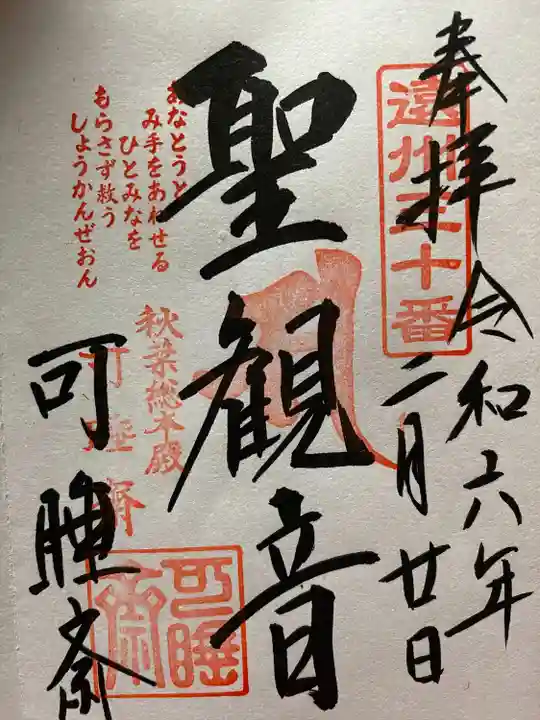 奉拝 令和六年
二月廿日
遠州三十番
聖観音
あなとうと
み手をあわせる
ひとみなを
もらさず救う
しょうかんぜおん
秋葉総本殿
可睡斎
可睡斎
可睡斎